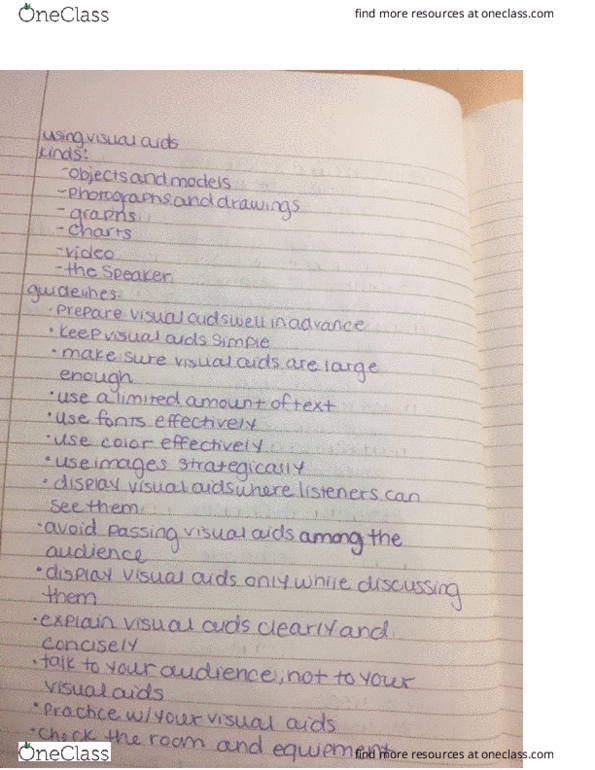 OneClass
find more resources at oneclass.com
using visual aids
kinds:
-objects and models
-photographs and drawings
-graphs
-charts
-video
-the speaker
guidelines:
·prepare visual aids well in advance
·keep visual aids simple
·make sure visual aids are large
enough
·use a limited amount of text
·use fonts effectively
·use color effectively
·use images strategically
·display visual aids where listeners can
see them
·avoid passing visual aids among the
audience
·display visual aids only while discussing
them
·explain visual aids clearly and
concisely
·talk to your audience, not to your
visual aids
·practice w/your visual aids
·check the room and equipment
OneClass
find more resources at oneclass.com